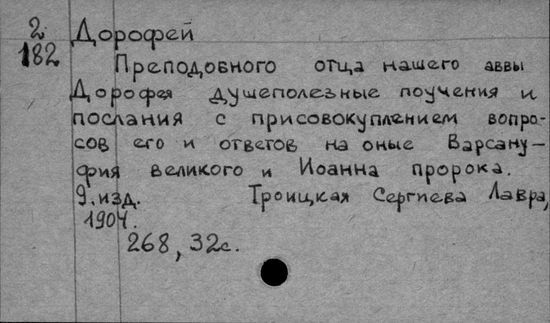 2. Дорофей
182
Преподобного отца нашего аввы
Дорофея душеполезные поучения и
послания с присовокуплением вопро-
сов его и ответов на оные Варсану-
фия великого и Иоанна пророка.
9. изд. Троицкая Сергиева Лавра,
1904.
268, 32с.